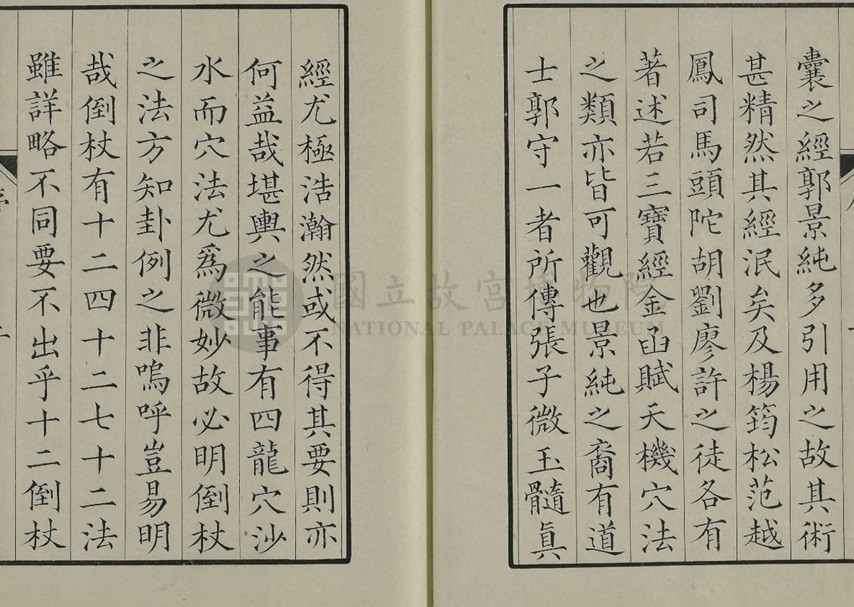 囊之經郭景純多引用之故其術
甚精然其經泯矣及楊筠松范越
鳳司馬頭陀胡劉廖許之徒各有
著述若三寶經金函賦天機穴法
之類亦皆可觀也景純之裔有道
士郭守一者所傳張子微玉髓眞
經尤極浩瀚然或不得其要則亦
何益哉堪輿之能事有四龍穴沙
水而穴法尤爲微妙故必明倒杖
之法方知卦例之非嗚呼豈易明
哉倒杖有十二四十二七十二法
雖詳略不同要不出乎十二倒杖
國立故宮博物院
NATIONAL PALACE MUSEUM